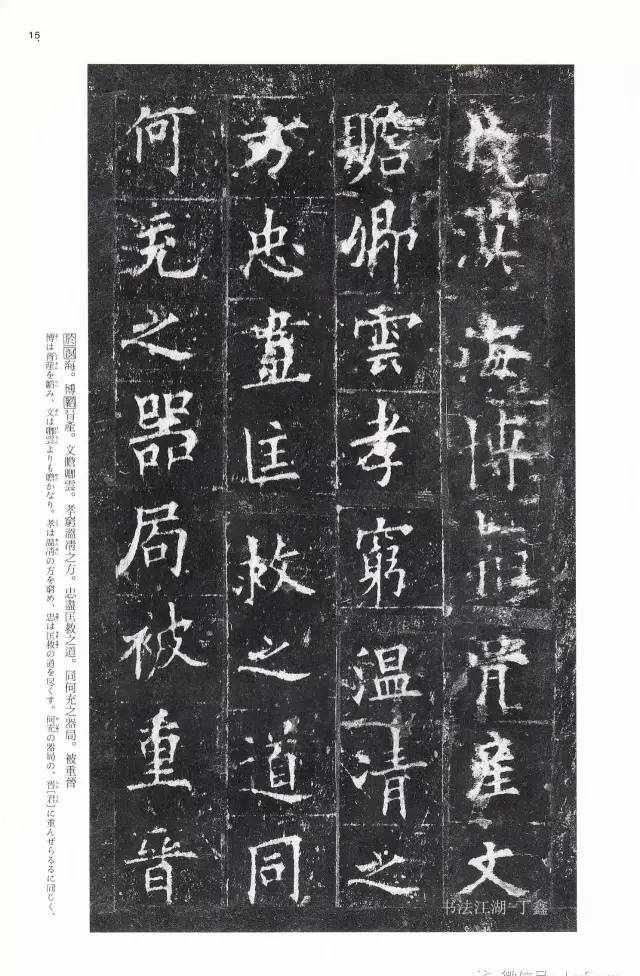 15
於溟海博韜胥產文
贍卿雲孝窮温清之
方忠盡匡救之道同
何充之器局被重晉
书法江湖-丁鑫
於溟海。博韜胥產。文贍卿雲。孝窮溫凊之方。忠盡匡救之道。同何充之器局。被重晉
博は胥産を韜み、文は卿雲よりも贍かなり。孝は温凊の方を窮め、忠は匡救の道を尽くす。何充の器局の、晋〔君〕に重んぜらるるに同じく、